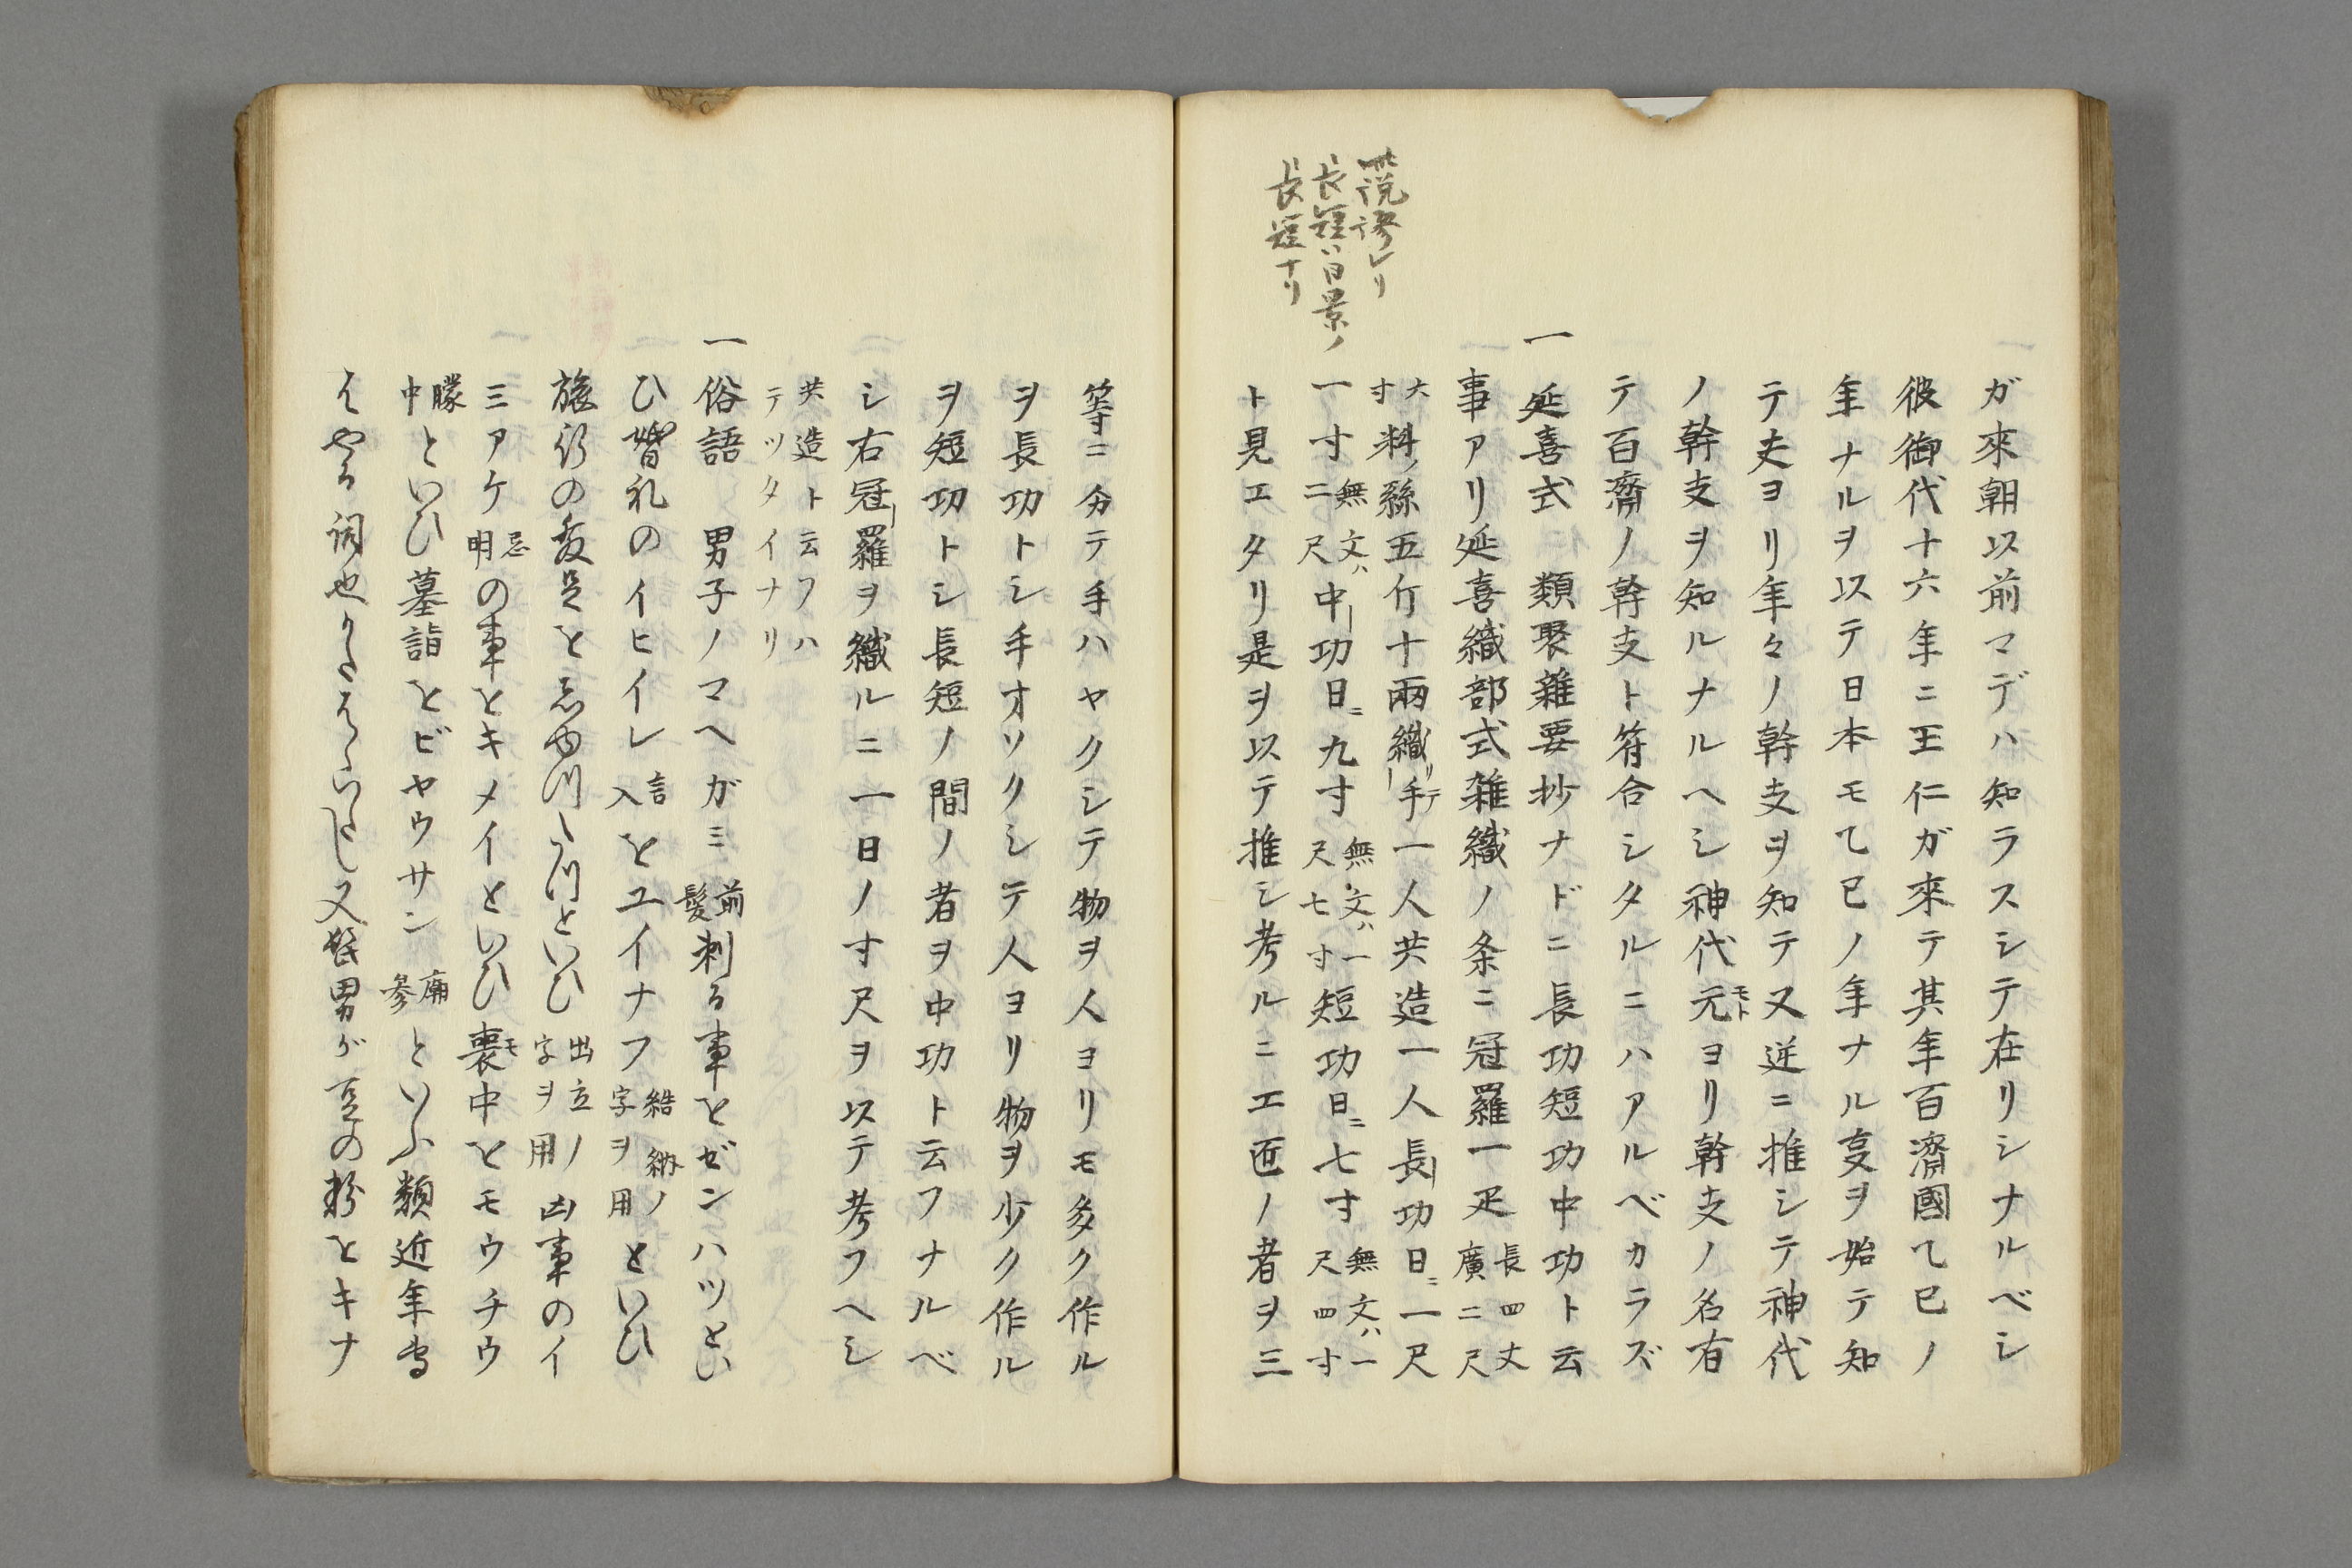 ガ來朝以前マデハ知ラスシテ在リシナルベシ
彼御代十六年ニ王仁ガ來テ其年百濟國乙巳ノ
年ナルヲ以テ日本モ乙巳ノ年ナル叓ヲ始テ知
テ夫ヨリ年々ノ幹支ヲ知テ又逆ニ推シテ神代
ノ幹支ヲ知ルナルヘシ神代元モトヨリ幹支ノ名有
テ百濟ノ幹支ト符合シタルニハアルベカラズ
一 延喜式 類聚雜要抄ナドニ長功短功中功ト云
事アリ延喜織部式雑織ノ条ニ冠羅一疋長四丈廣二尺
大寸料ノ絲五斤十兩織リ手テ一人共造一人長功日ニ一尺
一寸無文ハ二尺中功日ニ九寸無文ハ一尺七寸短功日ニ七寸無文ハ一尺四寸
ト見エタリ是ヲ以テ推シ考ルニ工匠ノ者ヲ三
此説謬レリ
長短ハ日景ノ
長短ナリ
等ニ分テ手ハヤクシテ物ヲ人ヨリモ多ク作ル
ヲ長功トシ手オソクシテ人ヨリ物ヲ少ク作ル
ヲ短功トシ長短ノ間ノ者ヲ中功ト云フナルベ
シ右冠羅ヲ織ルニ一日ノ寸尺ヲ以テ考フヘシ
共造ト云フハ
テツタイナリ
一 俗語 男子ノマヘガミ前髪剃る事をゼンハツとい
ひ婚礼のイヒイレ言入をユイナフ結納ノ字ヲ用といひ
旅行の發足を志ゆつたつといひ出立ノ字ヲ用凶事のイ
ミアケ忌明の事をキメイといひ喪モ中をモウチウ
朦中といひ墓詣をビヤウサン廟參といふ類近年専
はやる詞也かたはらいたし又髭男が豆の粉をキナ